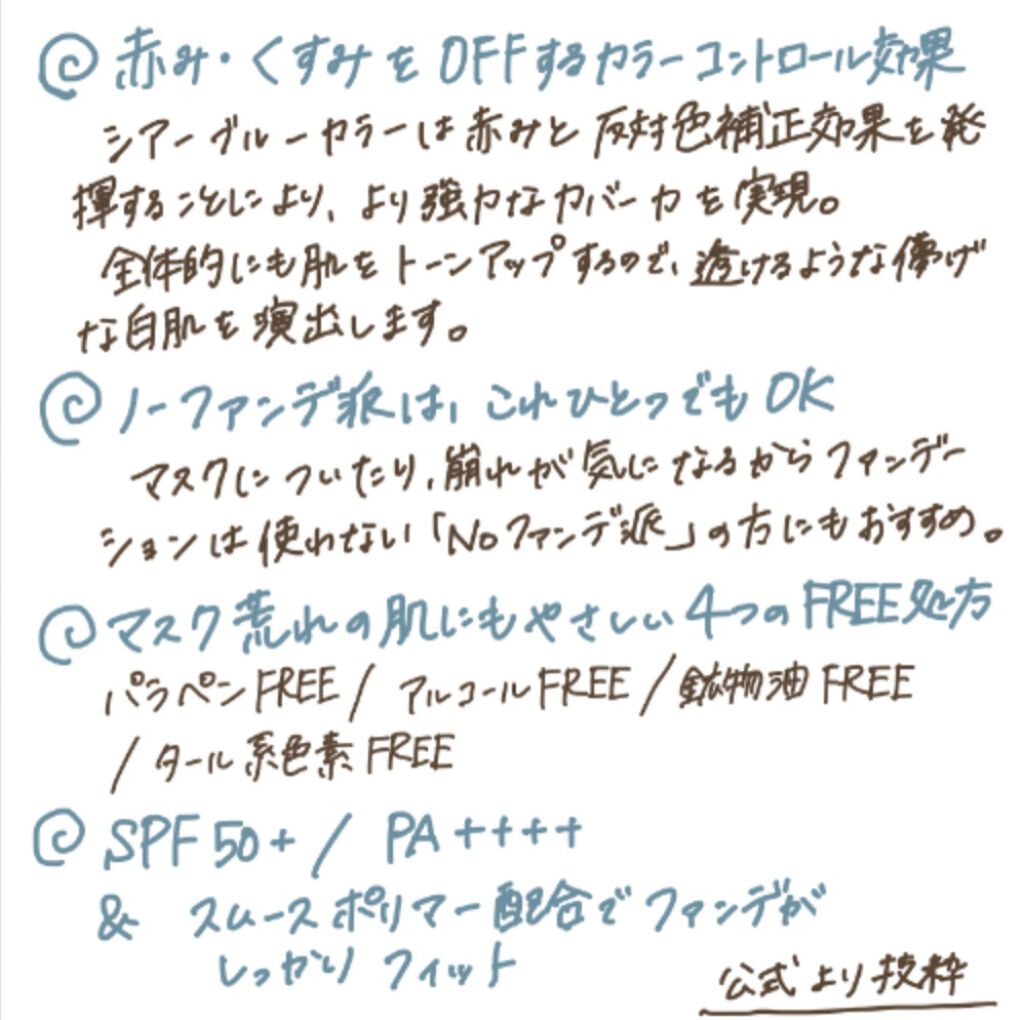 @ 赤み・くすみをOFFするカラーコントロール効果
シアーブルーカラーは赤みと反対色補正効果を発
揮することにより、より強力なカバー力を実現。
全体的にも肌をトーンアップするので、透けるような儚げ
な白肌を演出します。
@ ノーファンデ派は、これひとつでもOK
マスクについたり、崩れが気になるからファンデー
ションは使わない「Noファンデ派」の方にもおすすめ。
@ マスク荒れの肌にもやさしい4つのFREE処方
パラペンFREE / アルコールFREE / 鉱物油FREE
/ タール系色素FREE
@ SPF50+ / PA++++
& スムースポリマー配合でファンデが
しっかりフィット
公式より抜粋